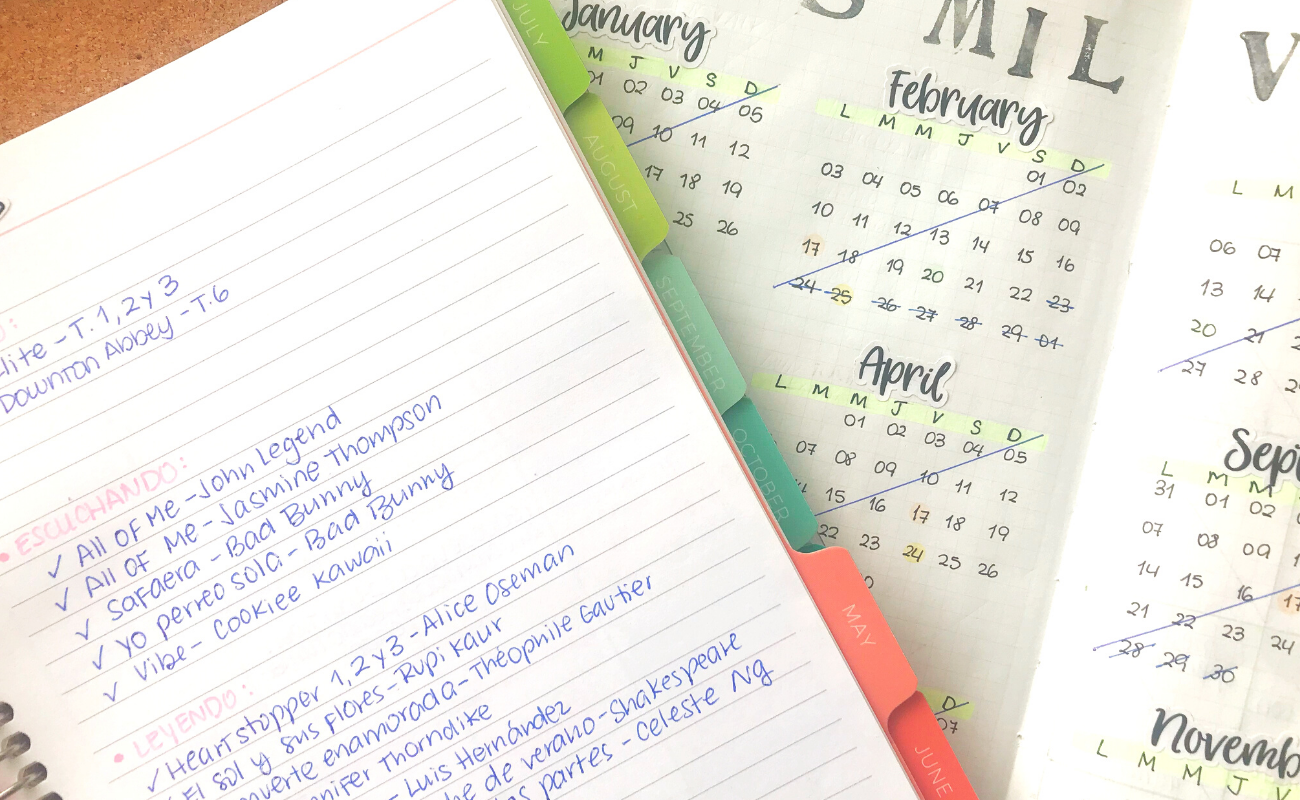 Elite - T. 1, 2 y 3
Downton Abbey - T.6
• ESCUCHANDO:
✓ All OF Me - John Legend
✓ All OF Me - Jasmine Thompson
✓ Safaera - Bad Bunny
✓ Yo perreo sola - Bad Bunny
✓ Vibe - Cookiee Kawaii
• LEYENDO:
✓ Heartstopper 1, 2 y 3 - Alice Oseman
El sol y sus flores - Rupi Kaur
enamorada - Théophile Gautier
Thorndike
- Luis Hernández
de verano - Shakespeare
partes - Celeste Ng
JULY
AUGUST
SEPTEMBER
OCTOBER
MAY
JUNE
MIL
V
January
M J V S D
01 02 03 04 05
09 10 11 12
17 18 19
25 26
February
L M M J V S D
01 02
03 04 05 06 07 08 09
10 11 12 13 14 15 16
17 18 19 20 21 22 23
24 25 26 27 28 29 01
April
L M M J V S D
01 02 03 04 05
07 08 09 10 11 12
15 16 17 18 19
22 23 24 25 26
D
07
L M
06 07
13 14
20 21
27 28
L M M
31 01 02
07 08 09
14 15 16 17
21 22 23 24
28 29 30
L M M J V